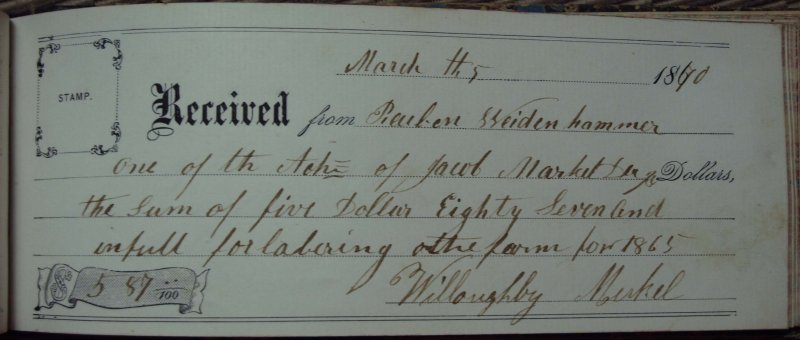 March th 5 1870
STAMP.
Received from Reuben Weidenhammer
one of th Adm of Jacob Markel Dollars,
the Sum of five Dollar Eighty Seven and
in full for labering othe farm for 1865
$ 5 87 /100
Willoughby Merkel